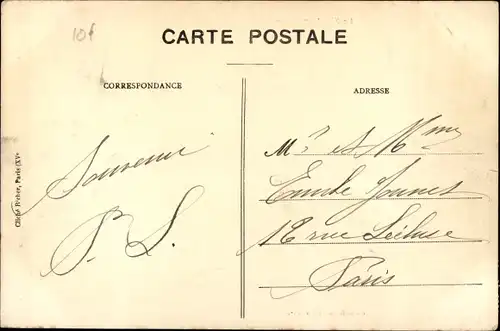 10f
CARTE POSTALE
CORRESPONDANCE
ADRESSE
Souvenir
P. L.
Mr et Mme
Emile
12 rue Lécluse
Paris
Cliché Fréber, Paris (XVe